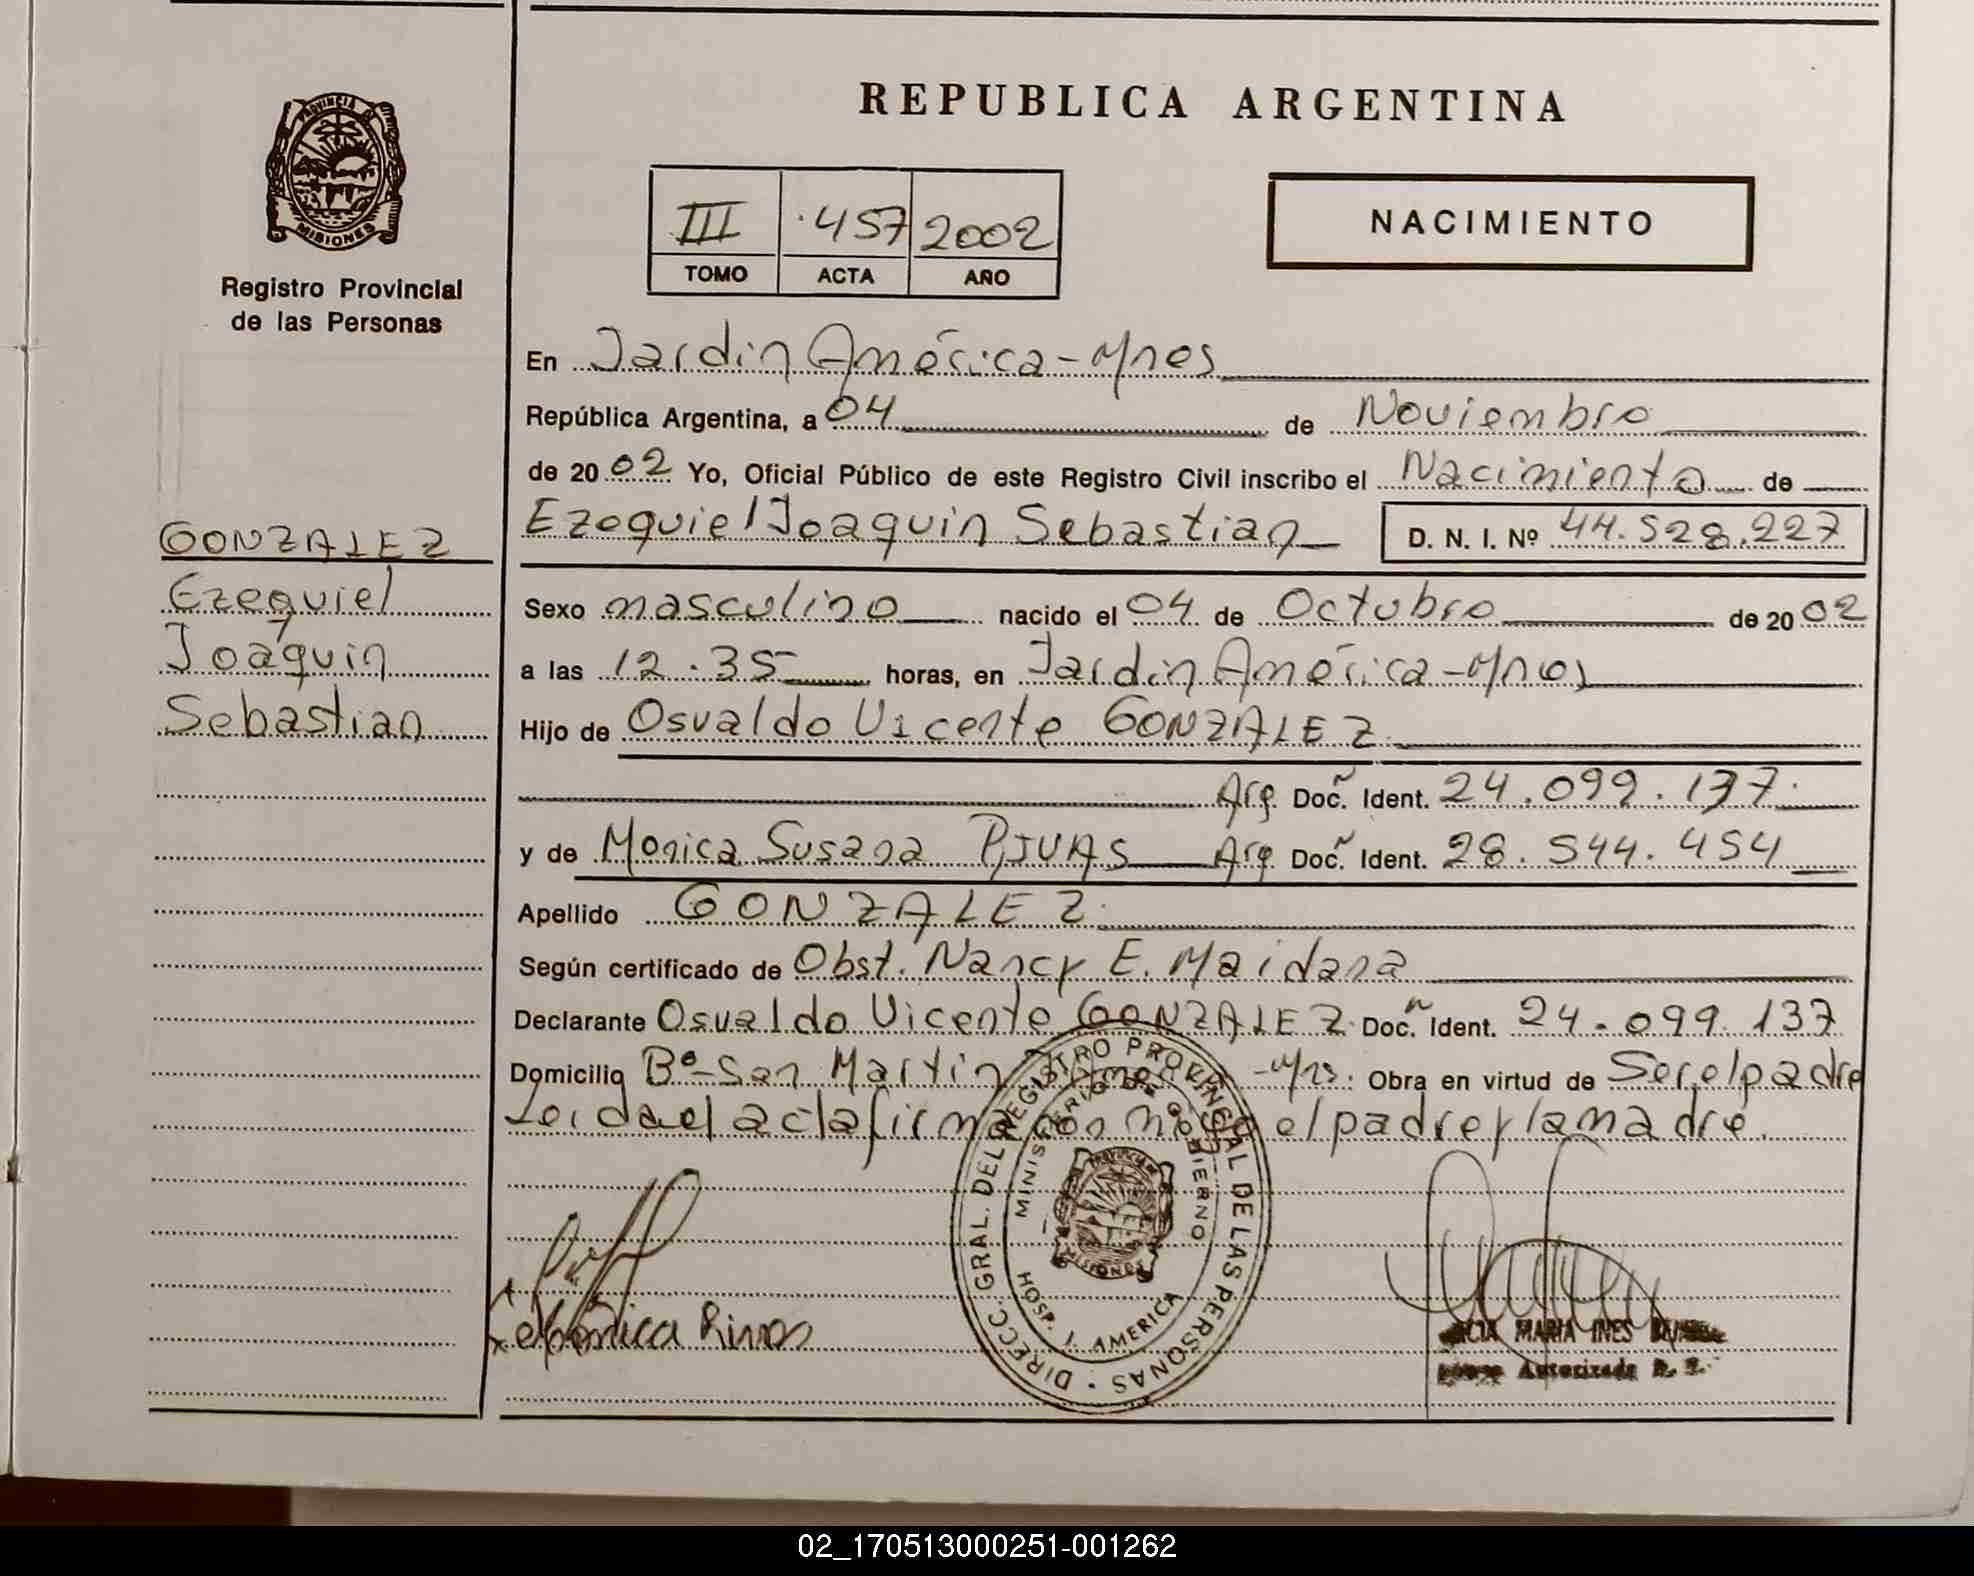 REPUBLICA ARGENTINA
PROVINCIA
MISIONES
Registro Provincial
de las Personas
III ·457 2002
TOMO ACTA AÑO
NACIMIENTO
En Jardin América-Mnes
República Argentina, a 04 de Noviembre
de 2002 Yo, Oficial Público de este Registro Civil inscribo el Nacimiento de
Ezequiel Joaquin Sebastian D. N. I. Nº 44.528.227
GONZALEZ
Ezequiel
Joaquin
Sebastian
Sexo masculino nacido el 04 de Octubre de 2002
a las 12.35 horas, en Jardin América-Mnes
Hijo de Osvaldo Vicente GONZALEZ
Arg. Doc. Ident. 24.099.137.
y de Monica Susana RIVAS Arg. Doc. Ident. 28.544.454
Apellido GONZALEZ.
Según certificado de Obst. Nancy E. Maidana
Declarante Osvaldo Vicente GONZALEZ Doc. Ident. 24.099.137
Domicilio Bº-San Martin -Mns. Obra en virtud de Ser el padre
Leida el acta firma con el padre y la madre.
DIRECC. GRAL. DEL REGISTRO PROVINCIAL DE LAS PERSONAS
MINISTERIO DE GOBIERNO
PROVINCIA
MISIONES
HOSP. J. AMERICA
Monica Rivas
MARIA INES
Autorizada
02_170513000251-001262